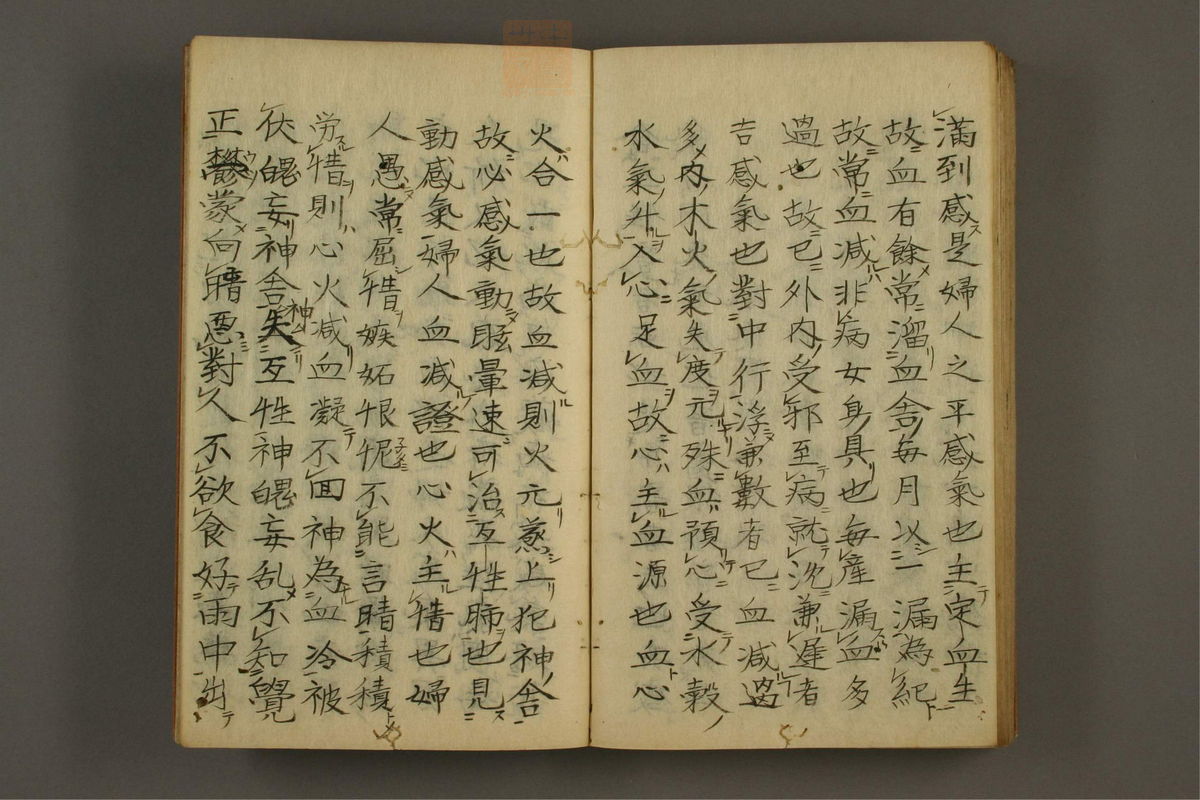 満到感是婦人之平感氣也主定血生
故血有餘常溜血舎毎月以一漏為紀
故常血減非病女身具也毎産漏血多
過也故已外内受邪至病就沈兼遅者
吉感氣也對中行浮兼數者已血減過
多内木火氣失度元殊血預心受水穀
水氣升入心足血故心主血源也血心
火合一也故血減則火元蒸上犯神舎
故必感氣動眩暈速可治互性肺也見
動感氣婦人血減證也心火主情也婦
人愚常屈情嫉妬恨怩不能言晴積積
労情則心火減血凝不回神為血冷被
伏魄妄神舎失神互性神魄妄乱不知覺
正鬱蒙向晴悪對人不欲食好雨中出